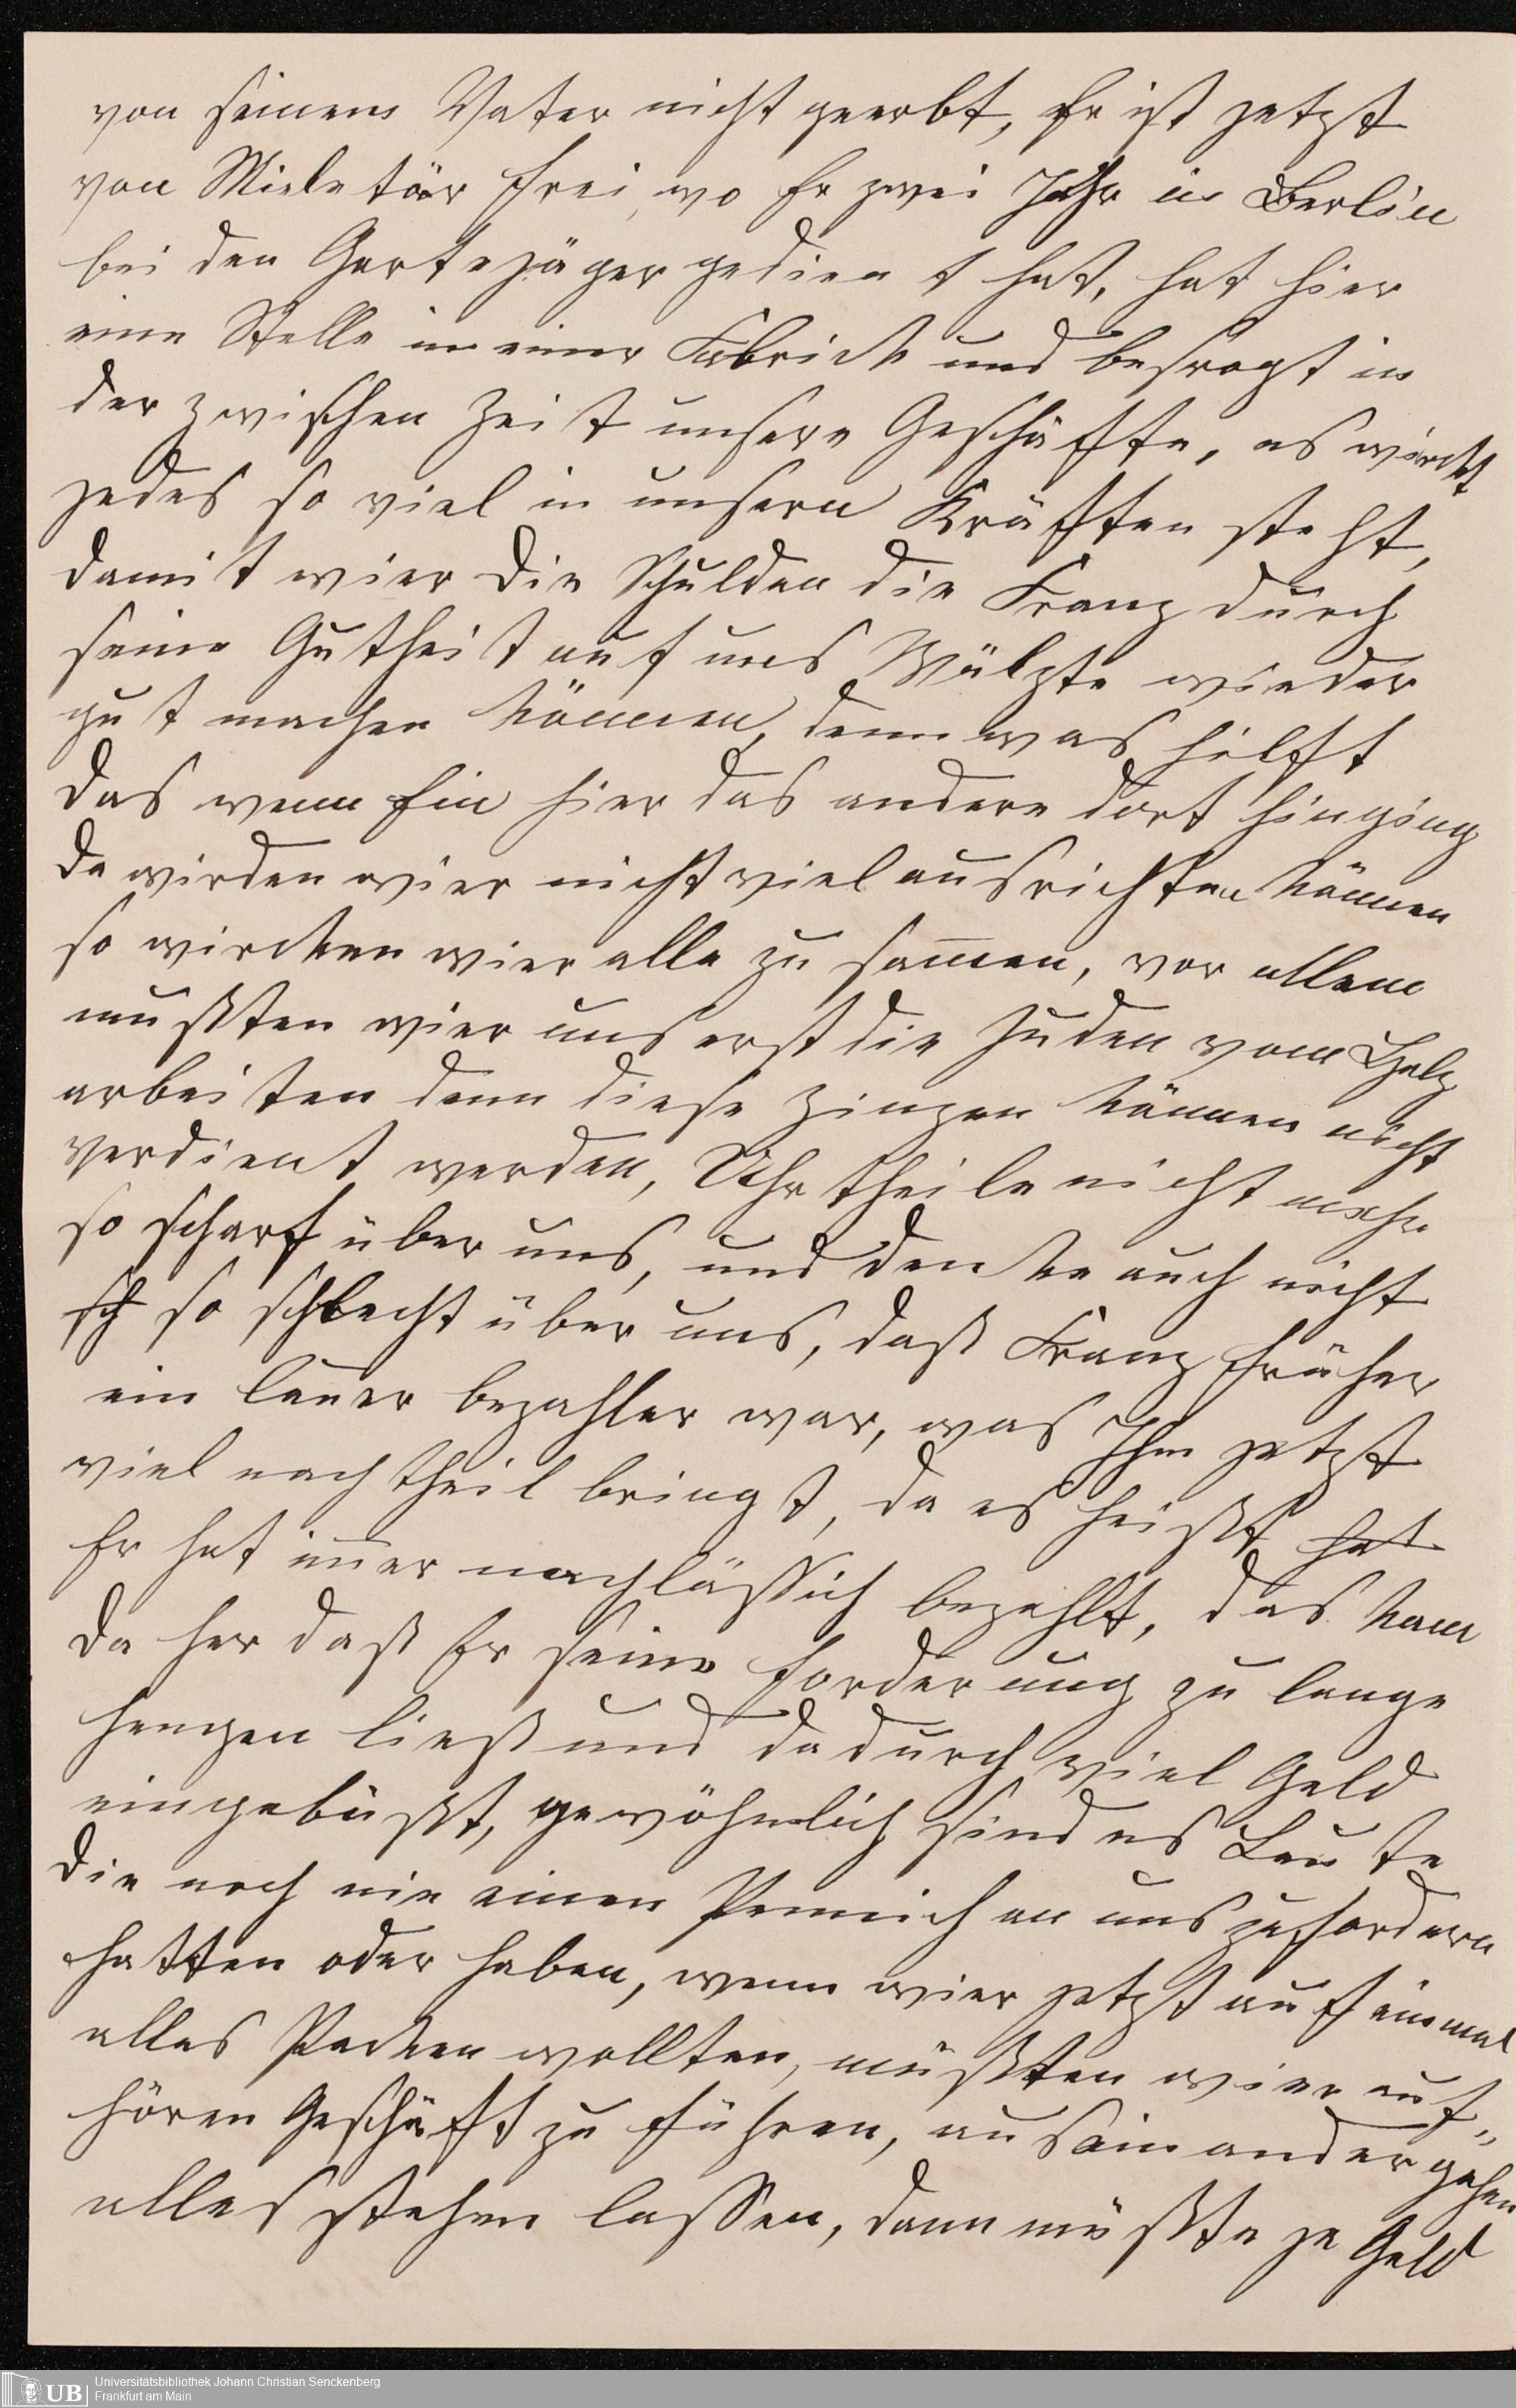 von seinem Vater nicht geerbt, Er ist jetzt
von Mieletär frei, wo Er zwei Jahr in Berlin
bei den Gartejäger gedien t hat, hat hier
eine Stelle in einer Fabrick und besragt in
der zwischen Zeit unsere Geschäfte, es wirckt
jedes so viel in unsern Kräften steht,
damit wier die Schulden die Franz durch
seine Gutheit auf uns Wälzte wieder
gut machen können, denn was hilft
das wenn Ein hier das andere dort hinging
da wirden wier nicht viel ausrichten können
so wircken wier alle zu sammen, vor allem
mußten wier uns erst die Juden vom Halz
arbeiten denn diese Zinzen können nicht
verdient werden, Uhrtheile nicht mehr
so scharf über uns, und denke auch nicht
sch so schlecht über uns, daß Franz früher
ein lauer bezahler war, was Ihm jetzt
viel nachtheil bringt, da es heißt, hat
Er hat immer nachlässich bezahlt, das kam
da her daß Er seine Forderung zu lange
hengen ließ und dadurch viel Geld
eingebüßt, gewöhnlich sind es Leute
die noch nie einen Pennich an uns zufordern
hatten oder haben, wenn wier jetzt auf einmal
alles Packen wollten, müßten wier auf„
hören Geschäft zu führen, auseinander gehen
alles stehen lassen, dann müßte ja Geld
Universitätsbibliothek Johann Christian Senckenberg
Frankfurt am Main
UB